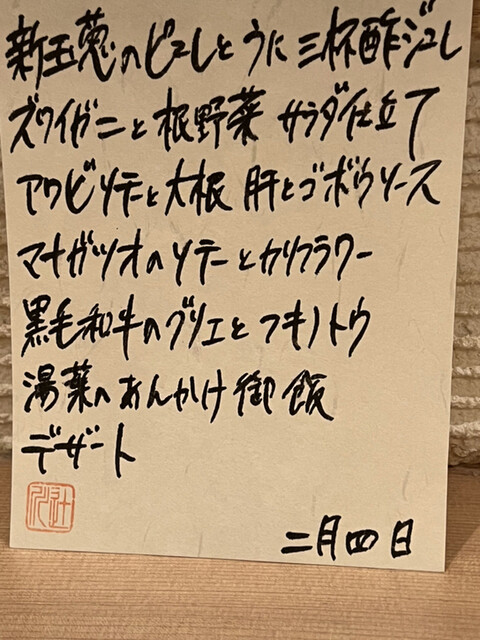 新玉葱のピュレとうに 三杯酢ジュレ
ズワイガニと根野菜 サラダ仕立て
アワビソテーと大根 肝とゴボウソース
マナガツオのソテーとカリフラワー
黒毛和牛のグリエとフキノトウ
湯葉のあんかけ御飯
デザート
二月四日